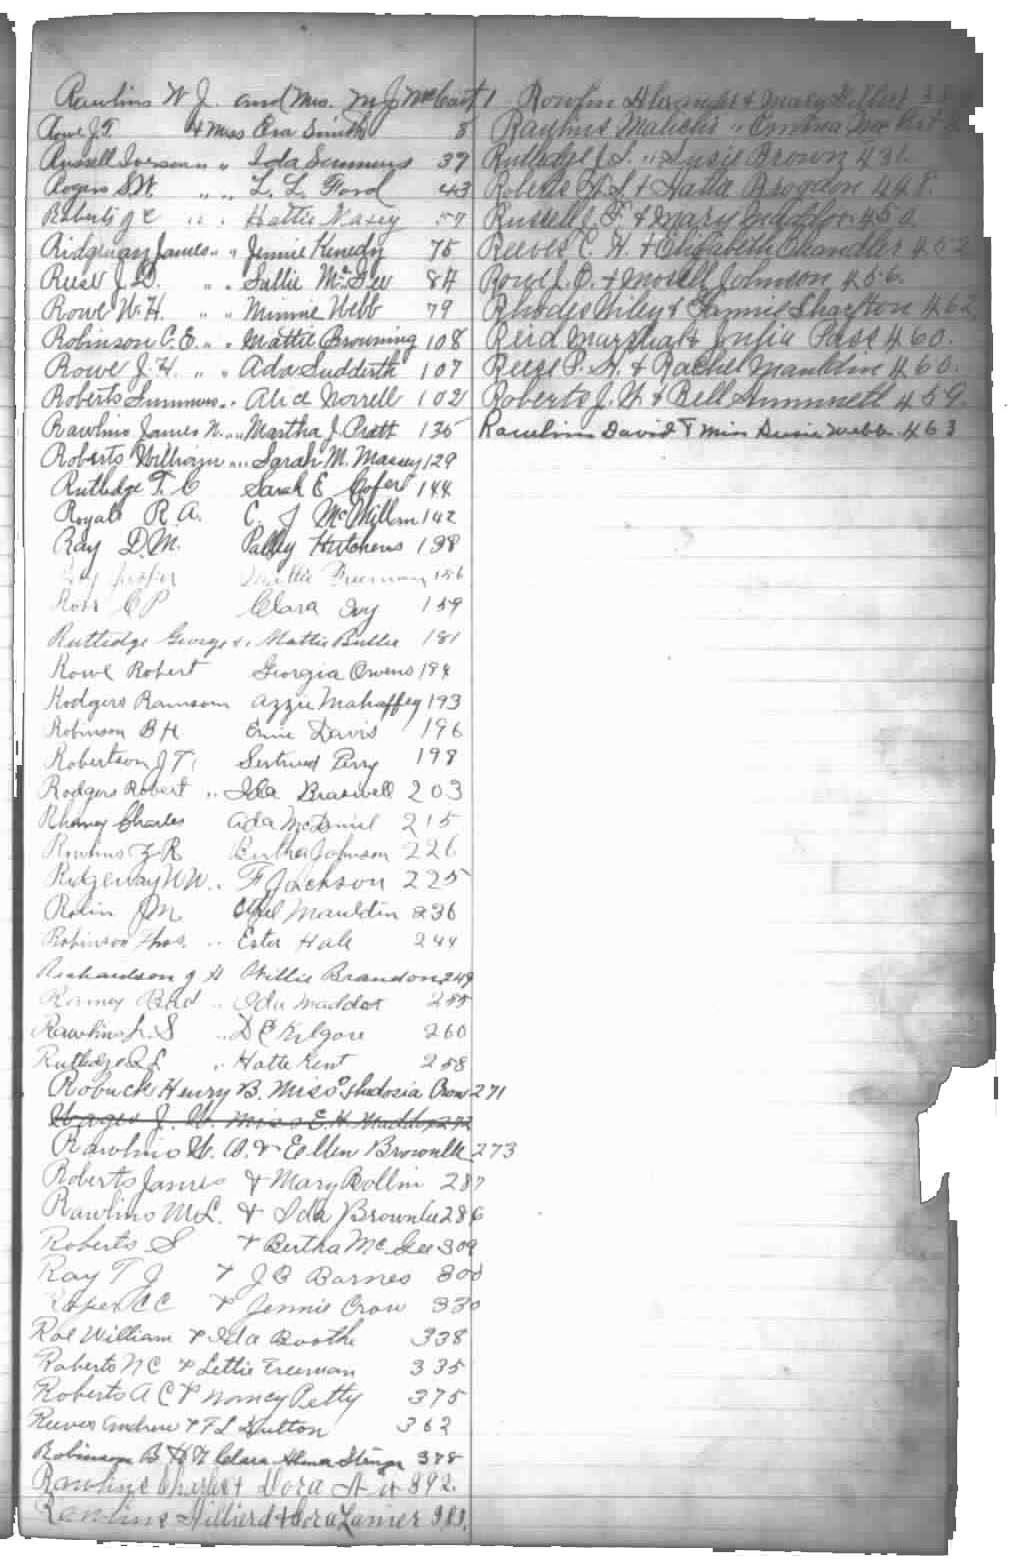 Rawlins W J. and Mrs. M J McCart 1
Rowe J. T. & Miss Eva Smith 8
Russell Iverson " " Ida Simmons 37
Rogers S W " " L. L. Ford 43
Roberts J E " " Hattie Kasey 57
Ridgeway James " " Jennie Kenedy 75
Reese J. D. " " Sallie McGee 84
Rowe W. H. " " Minnie Webb 79
Robinson C. E. " " Mattie Browning 108
Rowe J. H. " " Ada Suddarth 107
Roberts Simmons " " Alice Norrell 102
Rawlins James N. " " Martha J. Pratt 135
Roberts William " " Sarah M. Massey 129
Rutledge T. C Sarah E Cofer 144
Royals R. A. C J McMillan 142
Ray D. M. Palley Hutchens 138
Mattie Freeman 156
Ross C P Clara Ivy 159
Rutledge George & Mattie Butler 181
Rowe Robert Georgia Owens 184
Rodgers Ransom Azzie Mahaffey 193
Robinson B H Ernie Davis 196
Robertson J T. Gertrued Perry 198
Rodgers Robert " Ida Braswell 203
Rhoney Charles Ada McDaniel 215
Rawlins Z R Burtha Johnson 226
Ridgeway W W. " F Jackson 225
Robin J M Ethel Mauldin 236
Robinson Thos. " Ester Hale 244
Richardson J H Willie Brandon 249
Romey Bud " Ida Maddox 255
Rawlins L. S " D E Kilgore 260
Rutledge R L " Hatte Kent 258
Robuck Henry B. Miss Thedosia Crow 271
Wages J. W. Miss E. H Maddox 272
Rawlins W. A. & Eellen Brownlee 273
Roberts James & Mary Bollin 287
Rawlins M. L. & Ida Brownlee 286
Roberts S & Bertha McGee 309
Ray T J & J B Barnes 300
Roper C C & Jennie Crow 330
Roe William & Ida Boothe 338
Roberts N C & Lettie Freeman 335
Roberts A C & Nancy Petty 375
Reeves Andrew & F L Dutton 362
Robinson B H & Clara Alma Stinger 378
Rawlins Charles & Dora 392.
Rawlins Hilliard & Dora Lanier 383.
Rowlin & Mary Gilbert
Raylins Malichi " Emma
Rutledge J. L. " Susie Brown 431.
Roberts H. L. & Hatta Brogdon 448.
Russell L. F. & Mary Maddox 450.
Reeves C. H. & Elizabeth Chandler 452
Rowe J. O. & Novell Johnson 456.
Rhodes Wiley & Fannie Sharfton 462
Reid Marshal & Julia Pass 460.
Reese P. H. & Rachel Mauldin 460.
Roberts J. W. & Bell Gunnell 459
Rawlins David T Miss Susie Webb. 463